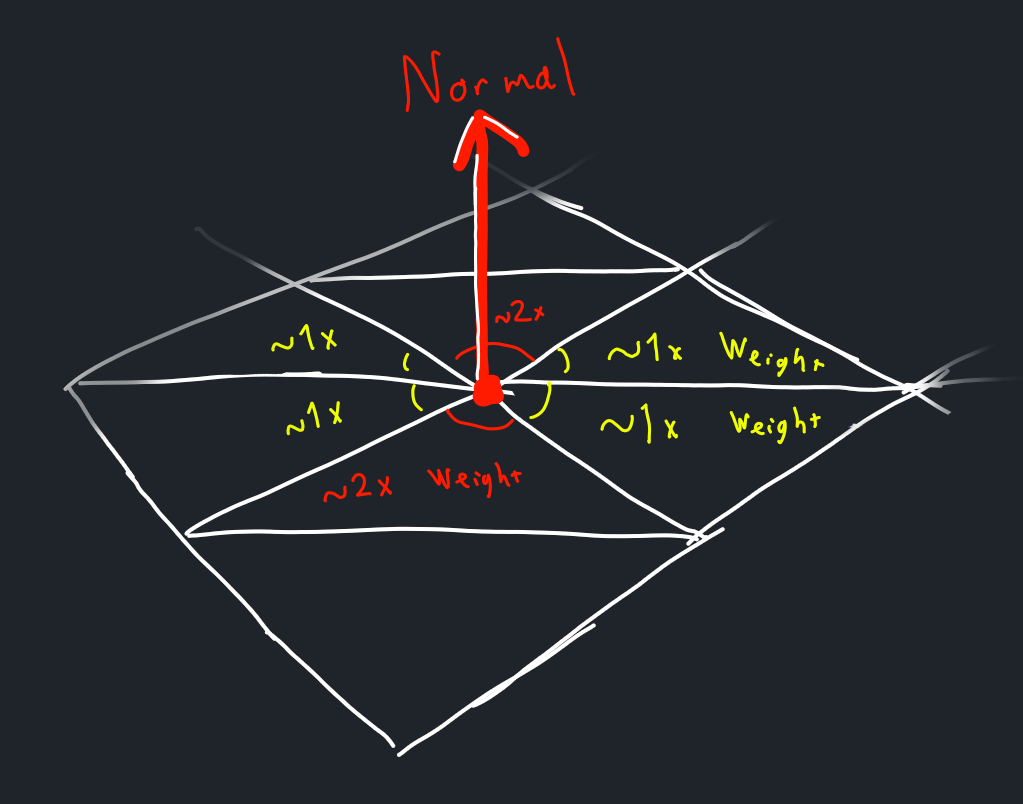 Normal
~2x
~1x
~1x Weight
~1x
~1x Weight
~2x Weight